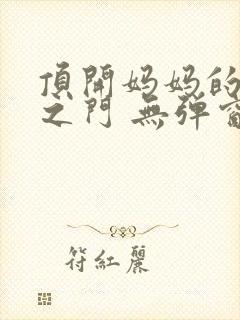 頂開妈妈的
之门 無弹窗
符紅麗